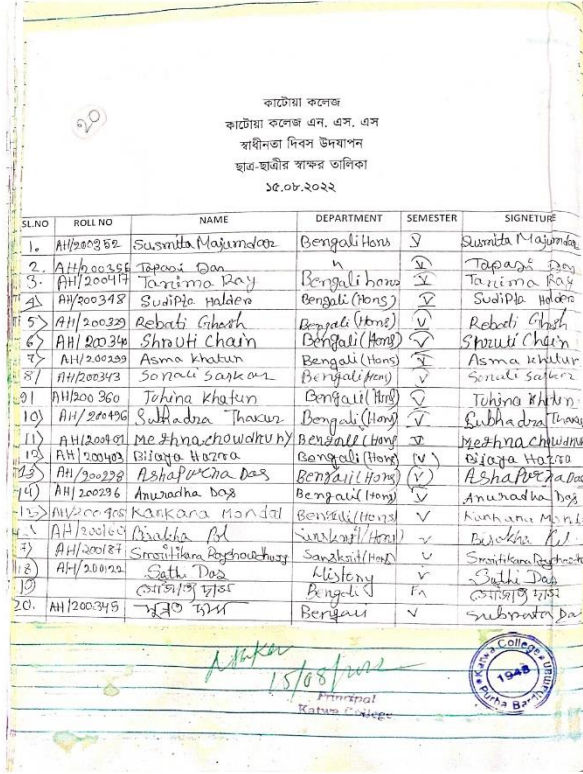 20
কাটোয়া কলেজ
কাটোয়া কলেজ এন. এস. এস
স্বাধীনতা দিবস উদযাপন
ছাত্র-ছাত্রীর স্বাক্ষর তালিকা
১৫.০৮.২০২২
SL.NO ROLL NO NAME DEPARTMENT SEMESTER SIGNETURE
1. AH/200352 Susmita Majumdar Bengali Hons V Susmita Majumdar
2. AH/200355 Tapasi Das " V Tapasi Das
3. AH/200417 Tanima Ray Bengali hons V Tanima Ray
4) AH/200348 Sudipta Halder Bengali (Hons) V Sudipta Halder
5) AH/200329 Rebati Ghosh Bengali (Hons) V Rebati Ghosh
6) AH/200340 Shruti Chain Bengali (Hons) V Shruti Chain
7) AH/200299 Asma Khatun Bengali (Hons) V Asma Khatun
8/ AH/200343 Sonali Sarkar Bengali (Hons) V Sonali Sarkar
9) AH/200360 Tuhina Khatun Bengali (Hons) V Tuhina Khatun
10) AH/200496 Subhadra Thakur Bengali (Hons) V Subhadra
11) AH/200401 Meghna Chowdhury Bengali (Hons V Meghna Chowdhu
12) AH/200403 Bijaya Hazra Bengali (Hons) (V) Bijaya Hazra
13) AH/200298 Ashapurna Das Bengali (Hons) (V) Ashapurna Das
14) AH/200296 Anuradha Das Bengali (Hons) V Anuradha Das
15) AH/200405 Kankana Mondal Bengali (Hons) V Kankana Mond
AH/200164 Bisakha Pal Sanskrit (Hons) V Bisakha Pal
17) AH/200187 Smritikana Roychoudhury Sanskrit (Hons) V Smritikana Roychou
18) AH/200122 Sathi Das History V Sathi Das
19) Bengali
20. AH/200345 সুব্রত দাস Bengali V Subrata Das
15/08/2022
Principal
Katwa College
Katwa College
1948
Purba Bardhaman